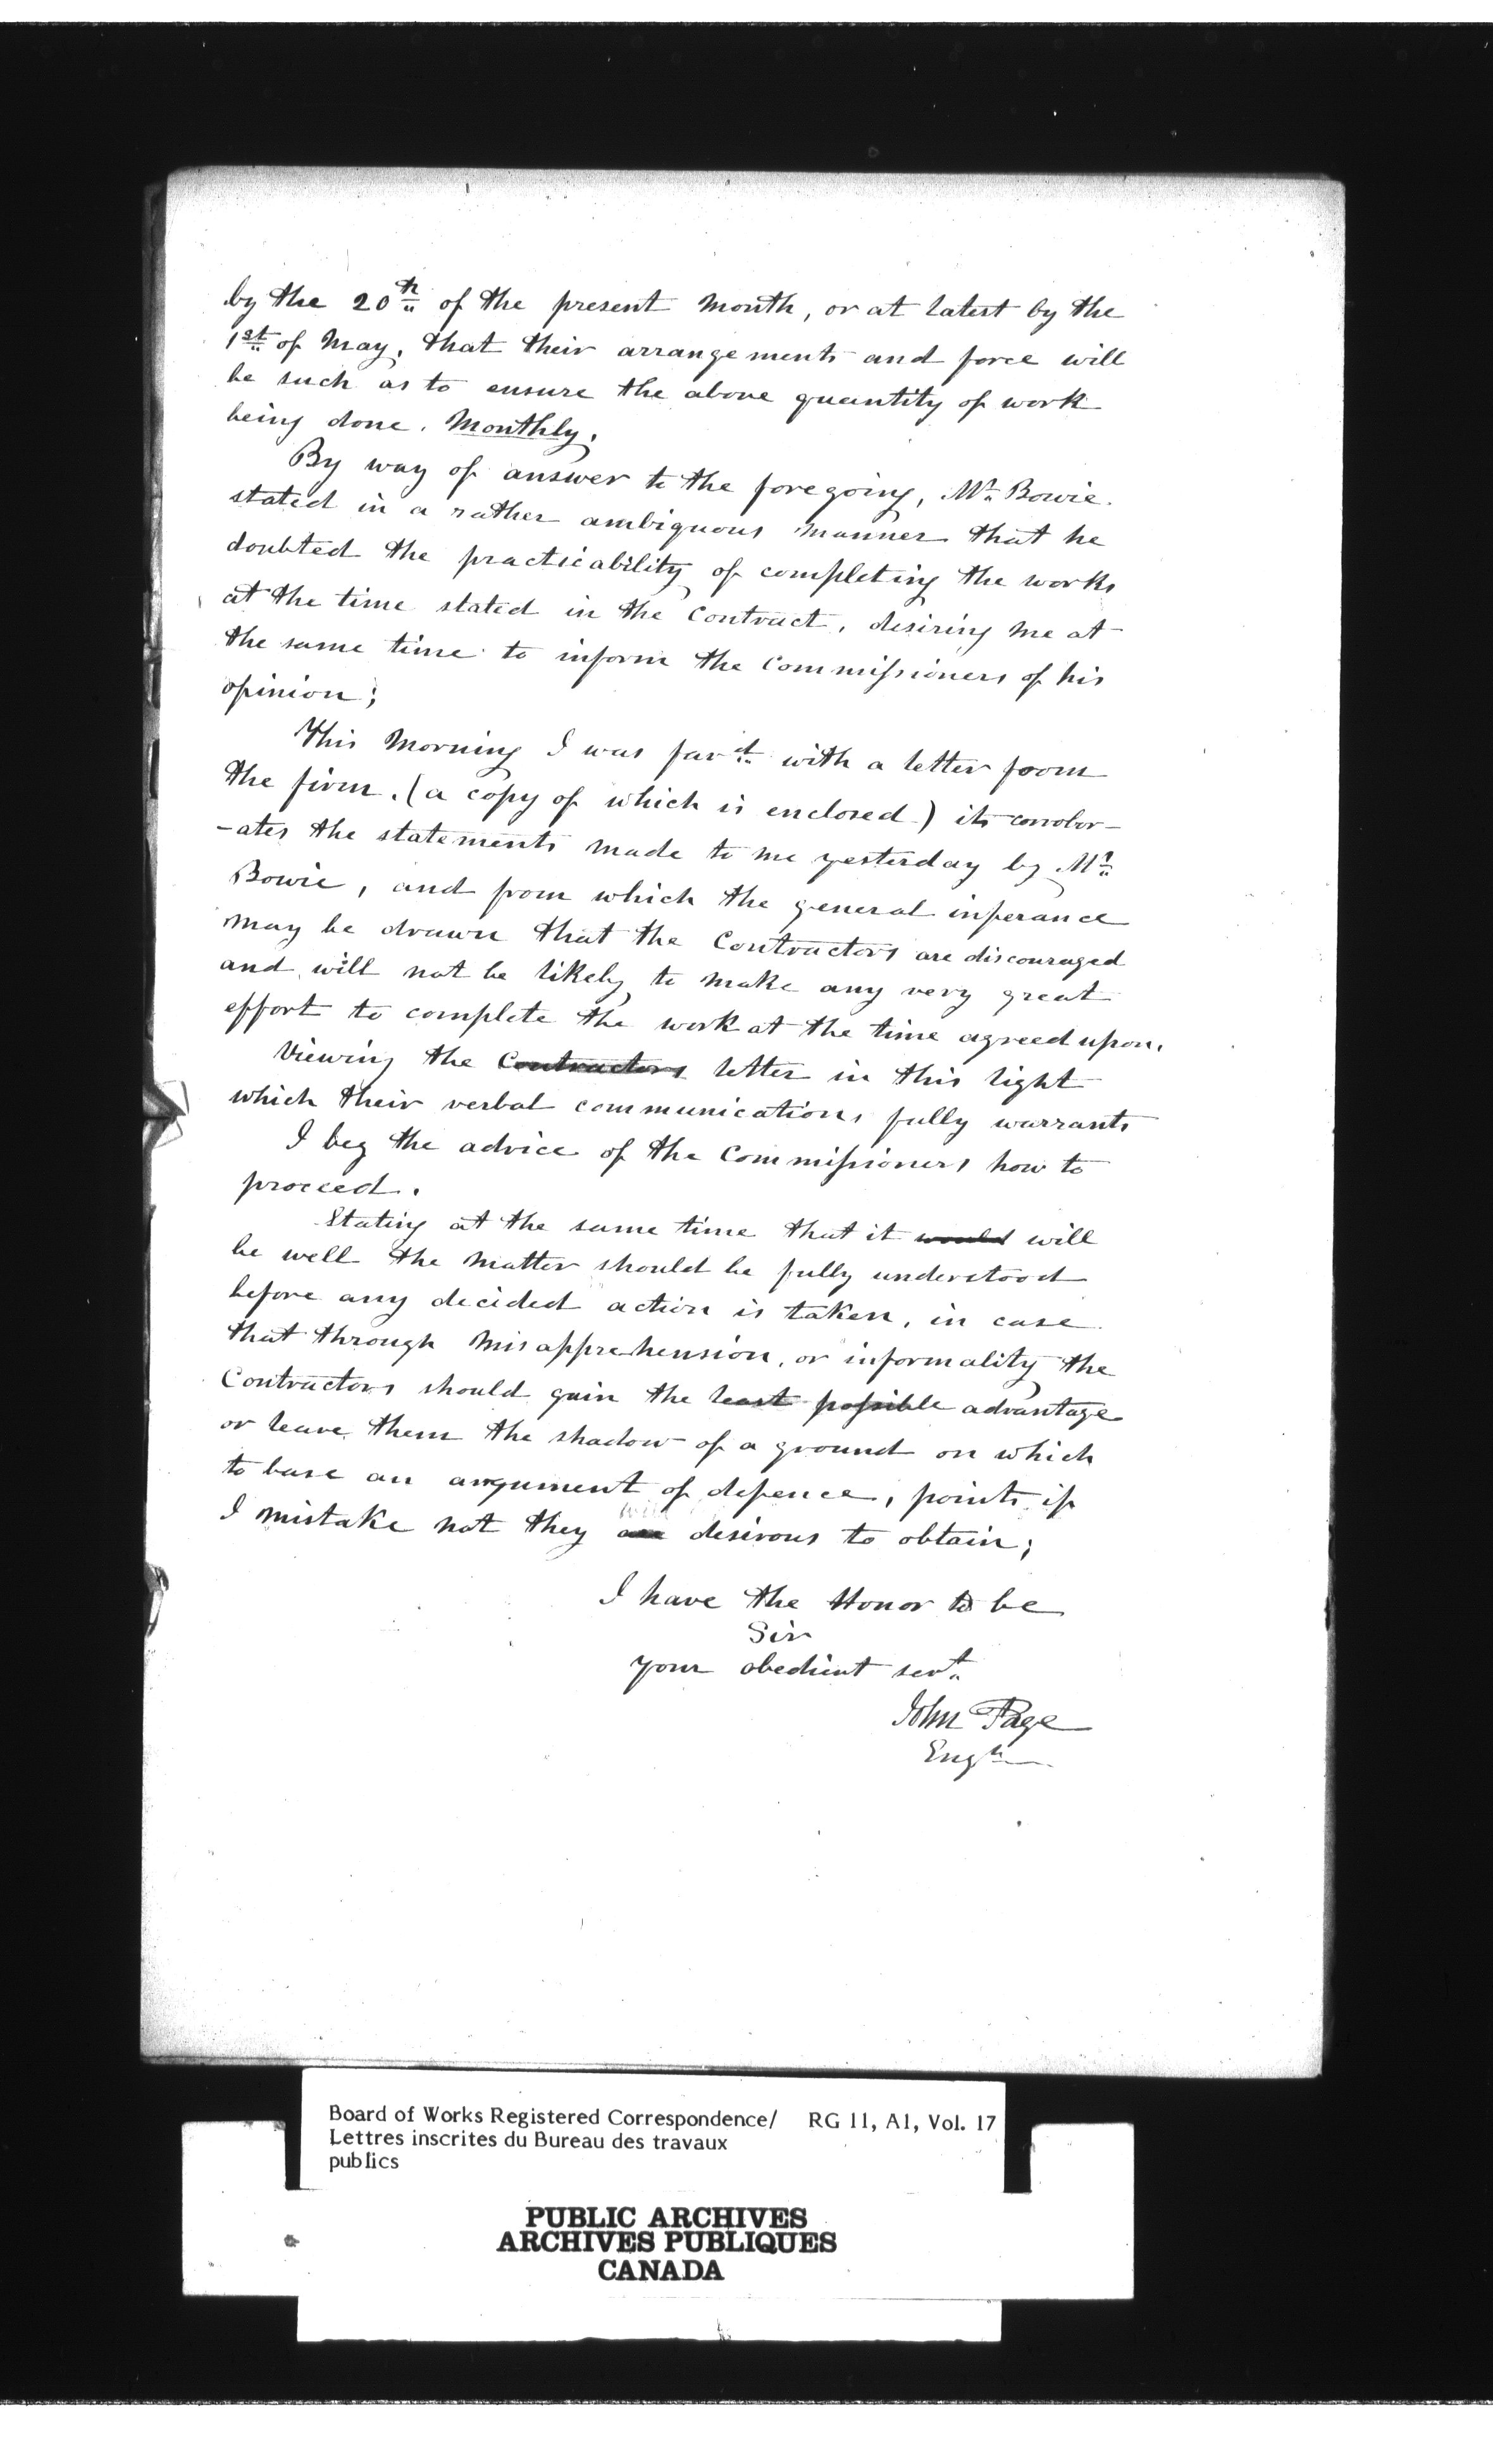 by the 20th of the present Month, or at latest by the
1st of May, that their arrangements and force will
be such as to ensure the above quantity of work
being done. Monthly.
By way of answer to the foregoing, Mr. Bowie.
stated in a rather ambiguous manner that he
doubted the practicability of completing the works
at the time stated in the Contract, desiring me at
the same time to inform the Commissioners of his
opinion;
This Morning I was favd. with a letter from
the firm. (a copy of which is enclosed) its corrobor-
-ates the statements made to me yesterday by Mr.
Bowie, and from which the general inferance
may be drawn that the Contractors are discouraged
and will not be likely to make any very great
effort to complete the work at the time agreed upon.
Viewing the Contractors letter in this light
which their verbal communications fully warrants
I beg the advice of the Commissioners how to
proceed.
Stating at the same time that it would will
be well the matter should be fully understood
before any decided action is taken, in case
that through misapprehension, or informality the
Contractors should gain the least possible advantage
or leave them the shadow of a ground on which
to base an argument of defence, points if
I mistake not they are desirous to obtain;
I have the Honor to be
Sir
your obedient servt.
John Page
Engr.
Board of Works Registered Correspondence/ RG 11, A1, Vol. 17
Lettres inscrites du Bureau des travaux
publics
PUBLIC ARCHIVES
ARCHIVES PUBLIQUES
CANADA